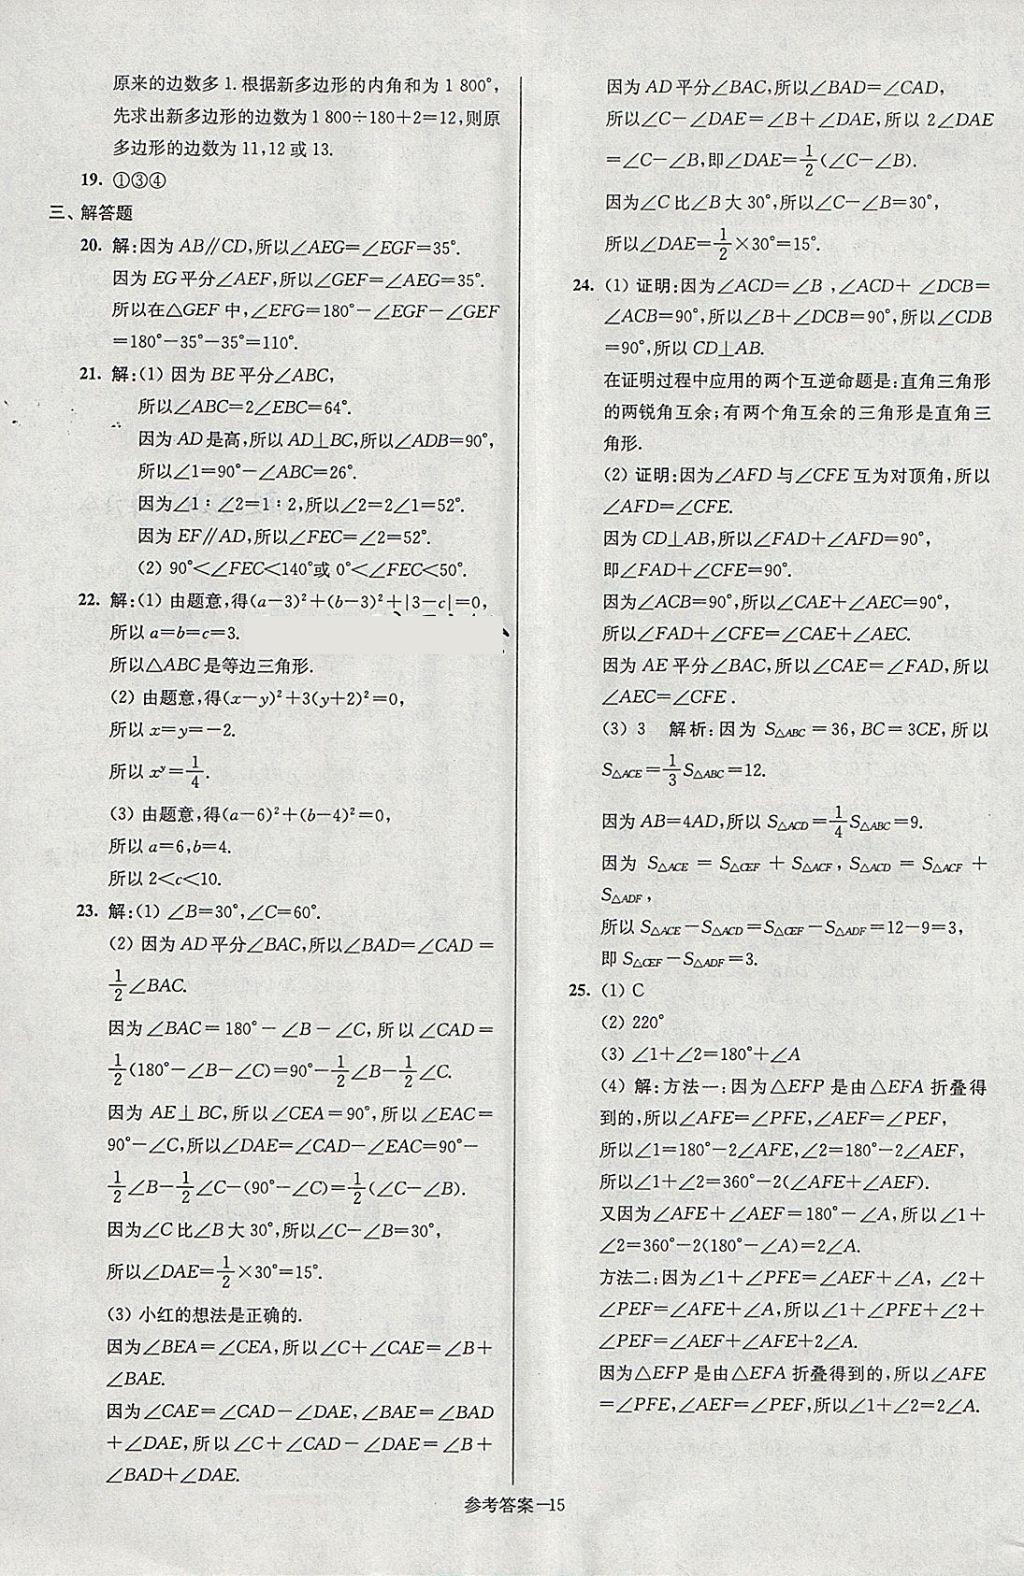 原来的边数多1.根据新多边形的内角和为1 800°,
先求出新多边形的边数为1 800÷180+2=12,则原
多边形的边数为11,12或13.
19. ①③④
三、解答题
20. 解:因为AB∥CD,所以∠AEG=∠EGF=35°.
因为EG平分∠AEF,所以∠GEF=∠AEG=35°.
所以在△GEF中,∠EFG=180°-∠EGF-∠GEF
=180°-35°-35°=110°.
21. 解:(1) 因为BE平分∠ABC,
所以∠ABC=2∠EBC=64°.
因为AD是高,所以AD⊥BC,所以∠ADB=90°,
所以∠1=90°-∠ABC=26°.
因为∠1∶∠2=1∶2,所以∠2=2∠1=52°.
因为EF∥AD,所以∠FEC=∠2=52°.
(2) 90°<∠FEC<140°或0°<∠FEC<50°.
22. 解:(1) 由题意,得(a-3)²+(b-3)²+|3-c|=0,
所以a=b=c=3.
所以△ABC是等边三角形.
(2) 由题意,得(x-y)²+3(y+2)²=0,
所以x=y=-2.
所以xʸ=1/4.
(3) 由题意,得(a-6)²+(b-4)²=0,
所以a=6,b=4.
所以2<c<10.
23. 解:(1) ∠B=30°,∠C=60°.
(2) 因为AD平分∠BAC,所以∠BAD=∠CAD=
1/2∠BAC.
因为∠BAC=180°-∠B-∠C,所以∠CAD=
1/2(180°-∠B-∠C)=90°-1/2∠B-1/2∠C.
因为AE⊥BC,所以∠CEA=90°,所以∠EAC=
90°-∠C,所以∠DAE=∠CAD-∠EAC=90°-
1/2∠B-1/2∠C-(90°-∠C)=1/2(∠C-∠B).
因为∠C比∠B大30°,所以∠C-∠B=30°,
所以∠DAE=1/2×30°=15°.
(3) 小红的想法是正确的.
因为∠BEA=∠CEA,所以∠C+∠CAE=∠B+
∠BAE.
因为∠CAE=∠CAD-∠DAE,∠BAE=∠BAD
+∠DAE,所以∠C+∠CAD-∠DAE=∠B+
∠BAD+∠DAE.
因为AD平分∠BAC,所以∠BAD=∠CAD,
所以∠C-∠DAE=∠B+∠DAE,所以2∠DAE
=∠C-∠B,即∠DAE=1/2(∠C-∠B).
因为∠C比∠B大30°,所以∠C-∠B=30°,
所以∠DAE=1/2×30°=15°.
24. (1) 证明:因为∠ACD=∠B,∠ACD+∠DCB=
∠ACB=90°,所以∠B+∠DCB=90°,所以∠CDB
=90°,所以CD⊥AB.
在证明过程中应用的两个互逆命题是:直角三角形
的两锐角互余;有两个角互余的三角形是直角三
角形.
(2) 证明:因为∠AFD与∠CFE互为对顶角,所以
∠AFD=∠CFE.
因为CD⊥AB,所以∠FAD+∠AFD=90°,
即∠FAD+∠CFE=90°.
因为∠ACB=90°,所以∠CAE+∠AEC=90°,
所以∠FAD+∠CFE=∠CAE+∠AEC.
因为AE平分∠BAC,所以∠CAE=∠FAD,所以
∠AEC=∠CFE.
(3) 3 解析:因为S△ABC=36,BC=3CE,所以
S△ACE=1/3S△ABC=12.
因为AB=4AD,所以S△ACD=1/4S△ABC=9.
因为S△ACE=S△CEF+S△ACF,S△ACD=S△ACF+
S△ADF,
所以S△ACE-S△ACD=S△CEF-S△ADF=12-9=3,
即S△CEF-S△ADF=3.
25. (1) C
(2) 220°
(3) ∠1+∠2=180°+∠A
(4) 解:方法一:因为△EFP是由△EFA折叠得
到的,所以∠AFE=∠PFE,∠AEF=∠PEF,
所以∠1=180°-2∠AFE,∠2=180°-2∠AEF,
所以∠1+∠2=360°-2(∠AFE+∠AEF).
又因为∠AFE+∠AEF=180°-∠A,所以∠1+
∠2=360°-2(180°-∠A)=2∠A.
方法二:因为∠1+∠PFE=∠AEF+∠A,∠2+
∠PEF=∠AFE+∠A,所以∠1+∠PFE+∠2+
∠PEF=∠AEF+∠AFE+2∠A.
因为△EFP是由△EFA折叠得到的,所以∠AFE
=∠PFE,∠AEF=∠PEF,所以∠1+∠2=2∠A.
参考答案—15